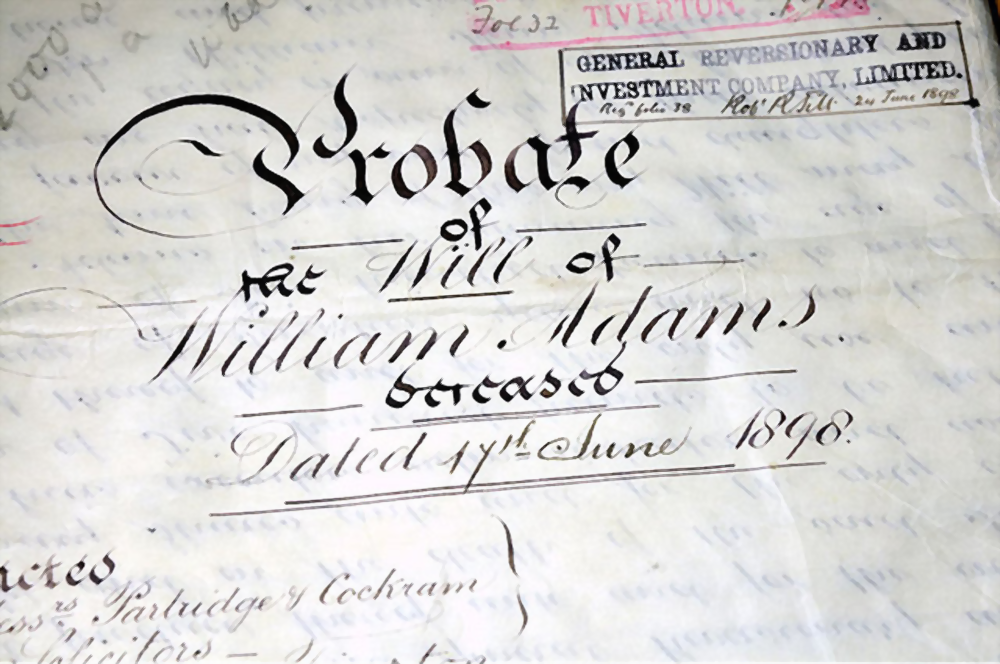 Fol 32
TIVERTON.
GENERAL REVERSIONARY AND
INVESTMENT COMPANY, LIMITED.
Regd folio 38 24 June 1898
Probate
of
the Will of
William Adams
deceased
Dated 17th June 1898.
Partridge & Cockram
Solicitors —